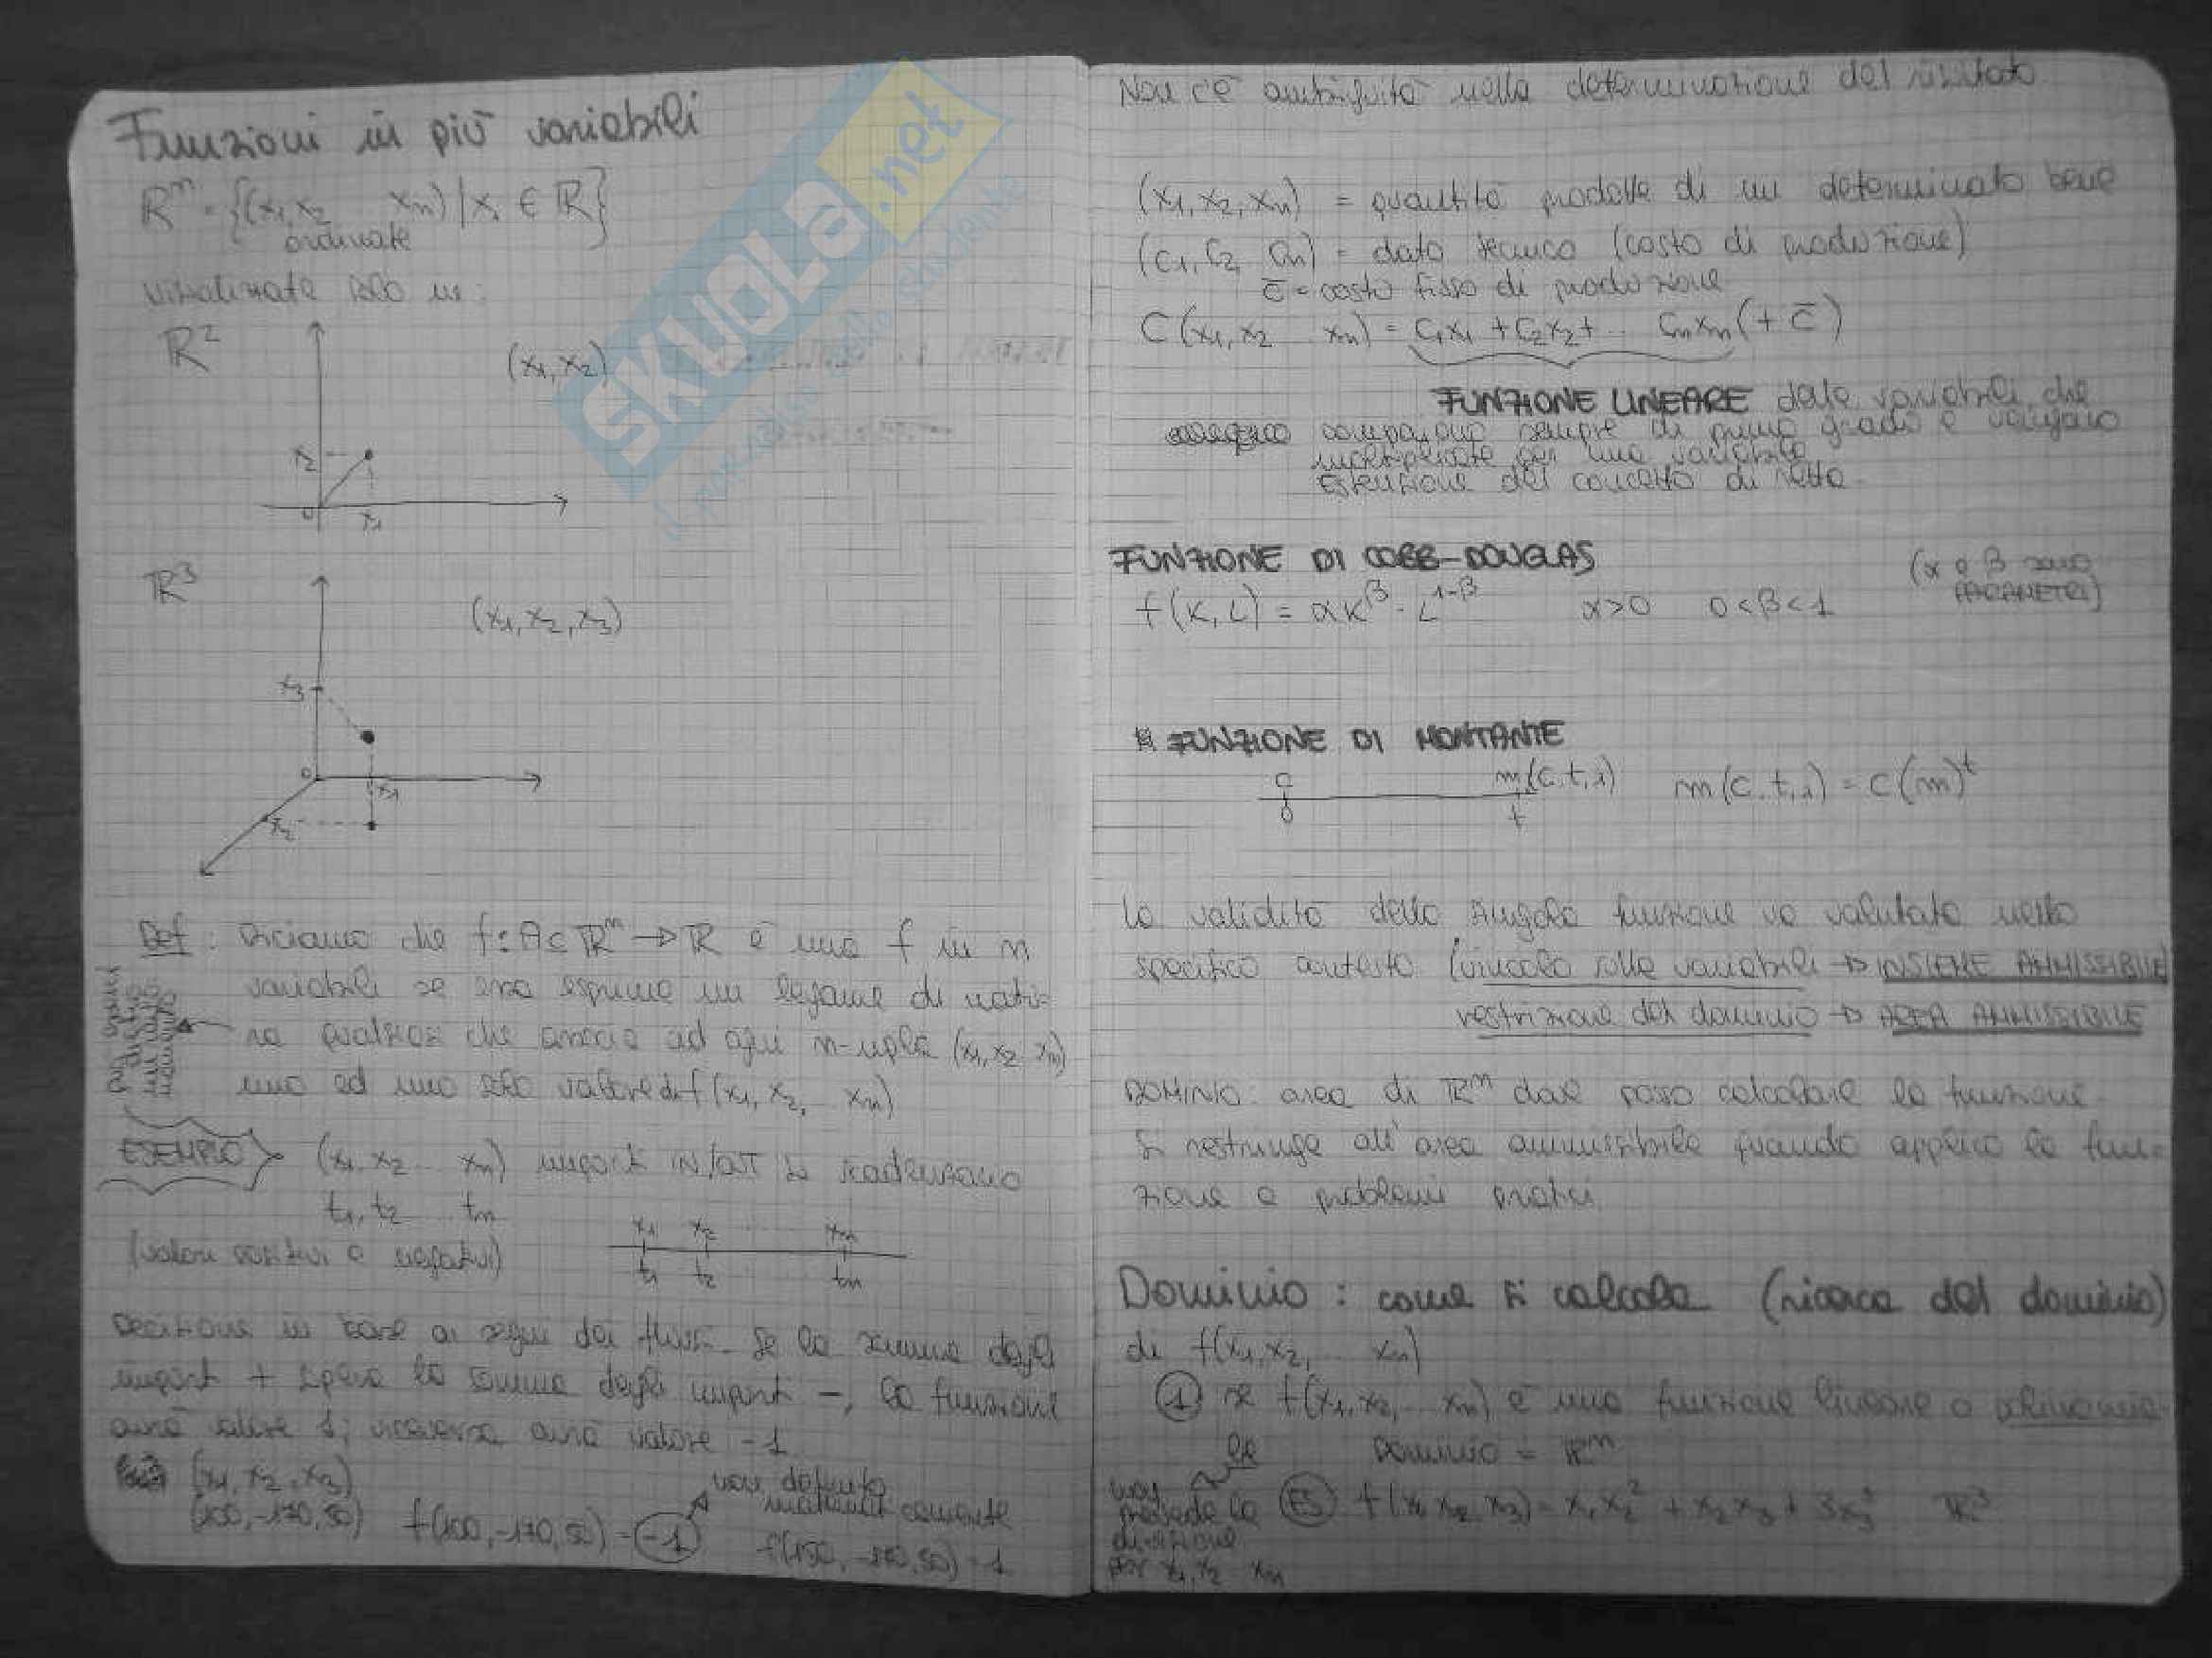 Funzioni in più variabili
Rⁿ = {(x₁, x₂ xₙ) | xᵢ ∈ R}
ordinate
visualizzate solo in:
R²
(x₁, x₂)
x₂
0
x₁
R³
(x₁, x₂, x₃)
x₃
0
x₁
x₂
Def: Diciamo che f: A⊂Rⁿ → R è una f in n
variabili se essa esprime un legame di natu-
ra qualsiasi che associa ad ogni n-upla (x₁, x₂ xₙ)
uno ed uno solo valore di f(x₁, x₂, xₙ)
ESEMPIO
(x₁, x₂... xₙ) importi IN/OUT si scadenzano
t₁, t₂ ... tₙ
(valori positivi e negativi)
x₁ x₂ xₙ
t₁ t₂ tₙ
Decisione in base ai segni dei flussi. Se la somma degli
importi + supera la somma degli importi -, la funzione
avrà valore 1; viceversa avrà valore -1
(x₁, x₂, x₃)
(100, -170, 50) f(100, -170, 50) = -1
non definito
matematicamente
SKUOLA.net
il paradiso dello studente
Non c'è ambiguità nella determinazione del risultato
(x₁, x₂, xₙ) = quantità prodotte di un determinato bene
(c₁, c₂, cₙ) = dato tecnico (costo di produzione)
c̄ = costo fisso di produzione
C(x₁, x₂ xₙ) = c₁x₁ + c₂x₂ + ... cₙxₙ (+ c̄)
FUNZIONE LINEARE date variabili che
compaiono sempre di primo grado e vengano
moltiplicate per una variabile
Estensione del concetto di retta.
FUNZIONE DI COBB-DOUGLAS
(α e β sono
PARAMETRI)
f(K, L) = αK^β · L^(1-β) α>0 0<β<1
FUNZIONE DI MONTANTE
C m(C, t, i) m(C, t, i) = C(m)ᵗ
0 t
La validità della singola funzione va valutata nello
specifico contesto (vincolo sulle variabili → INSIEME AMMISSIBILE
restrizione del dominio → AREA AMMISSIBILE
DOMINIO: area di Rⁿ dove posso calcolare la funzione.
Si restringe all'area ammissibile quando applico la fun-
zione a problemi pratici.
Dominio: come si calcola (ricerca del dominio)
di f(x₁, x₂, ... xₙ)
① se f(x₁, x₂, ... xₙ) è una funzione lineare o polinomia
Dominio = Rⁿ
non
prevede la
divisione
per x₁, x₂ xₙ
ES f(x₁, x₂, x₃) = x₁x₂² + x₂x₃ + 3x₃² R³